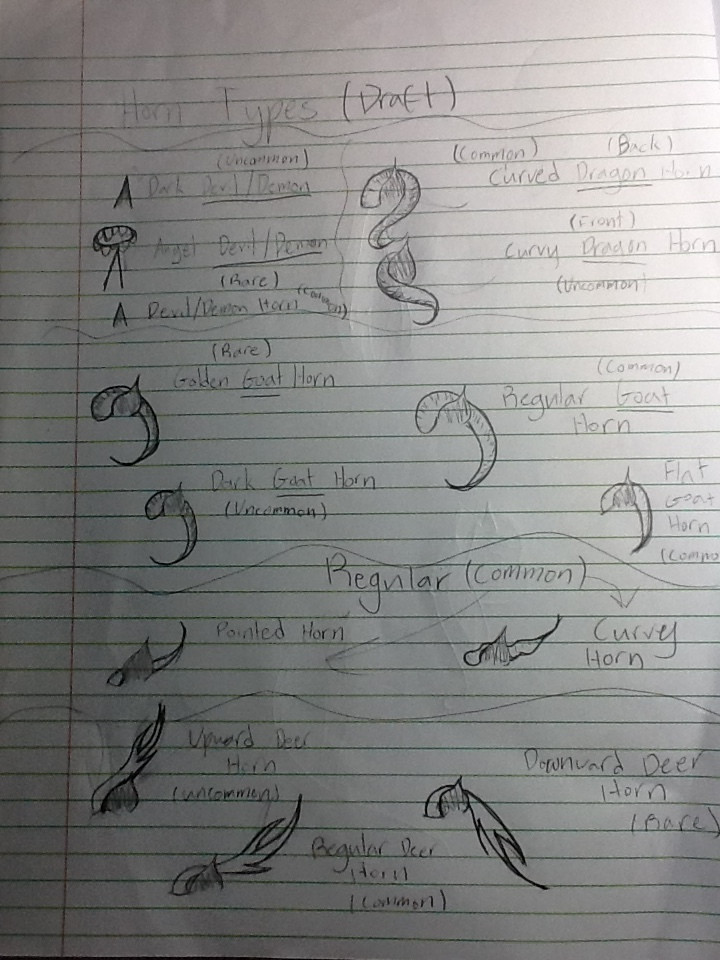 Horn Types (Draft)
(Uncommon)
Dark Devil/Demon
Angel Devil/Demon
(Rare)
Devil/Demon Horn (Common)
(Common) (Back)
Curved Dragon Horn
(Front)
Curvy Dragon Horn
(Uncommon)
(Rare)
Golden Goat Horn
(Common)
Regular Goat
Horn
Dark Goat Horn
(Uncommon)
Flat
Goat
Horn
(Commo
Regular (Common)
Pointed Horn
Curvey
Horn
Upward Deer
Horn
(uncommen)
Downward Deer
Horn
(Rare)
Regular Deer
Horn
(common)